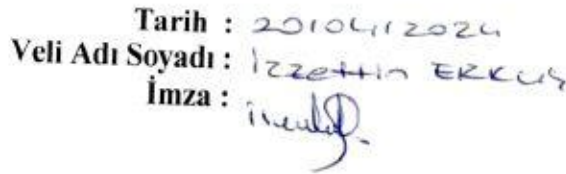 Tarih : 20/04/2024
Veli Adı Soyadı : İzzettin ERKUŞ
İmza :